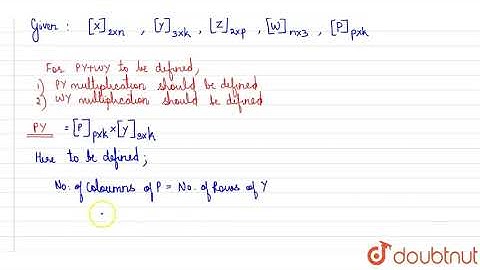 Given : [X]2xn , [y]3xk , [Z]2xp , [W]nx3 , [P]pxk
For PY+WY to be defined,
1) PY multiplication should be defined
2) WY multiplication should be defined
PY = [P]pxk x [y]3xk
Here to be defined;
No. of Coloumns of P = No. of Rows of Y
doubtnut